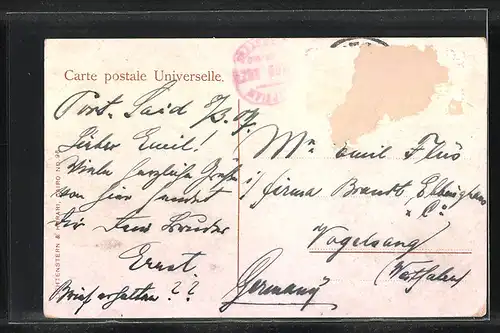 Carte postale Universelle.
Port-Said 8/3.07.
Lieber Emil!
Viele herzliche Grüße
von hier sendet
Dir Dein Bruder
Ernst
Brief erhalten??
Mr. Emil Flüs
i/ firma Brandt,
& Co.
Vogelsang
(Westfalen)
Germany